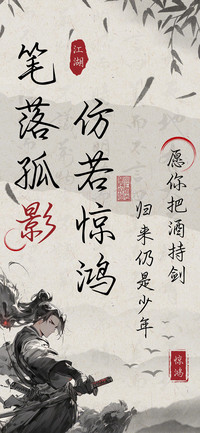 江湖
笔落孤影
仿若惊鸿
愿你把酒持剑
归来仍是少年
惊鸿